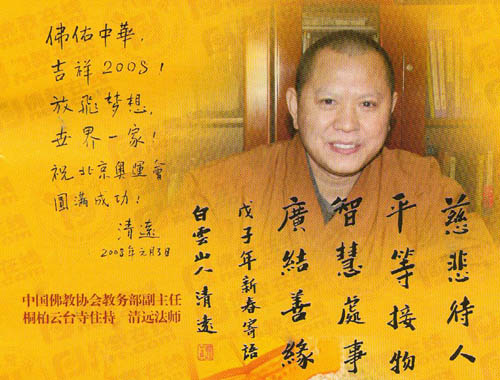 佛佑中華,
吉祥2008!
放飛梦想,
世界一家!
祝北京奧運會
圓滿成功!
清远
2008年元月3日
中国佛教协会教务部副主任
桐柏云台寺住持 清远法师
慈悲待人
平等接物
智慧處事
廣結善緣
戊子年新春寄語
白雲山人清遠